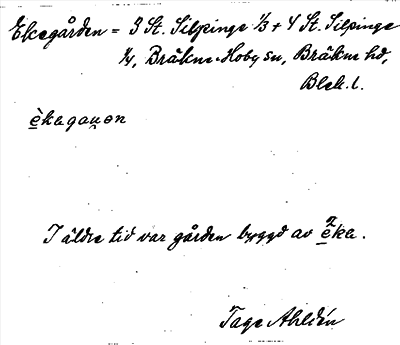 Ekegården = 3 St. Silpinge 1/3 + 4 St. Silpinge
1/4, Bräkne-Hoby sn, Bräkne hd,
Blek. l.
I äldre tid var gården byggd av èka.
Tage Ahldén